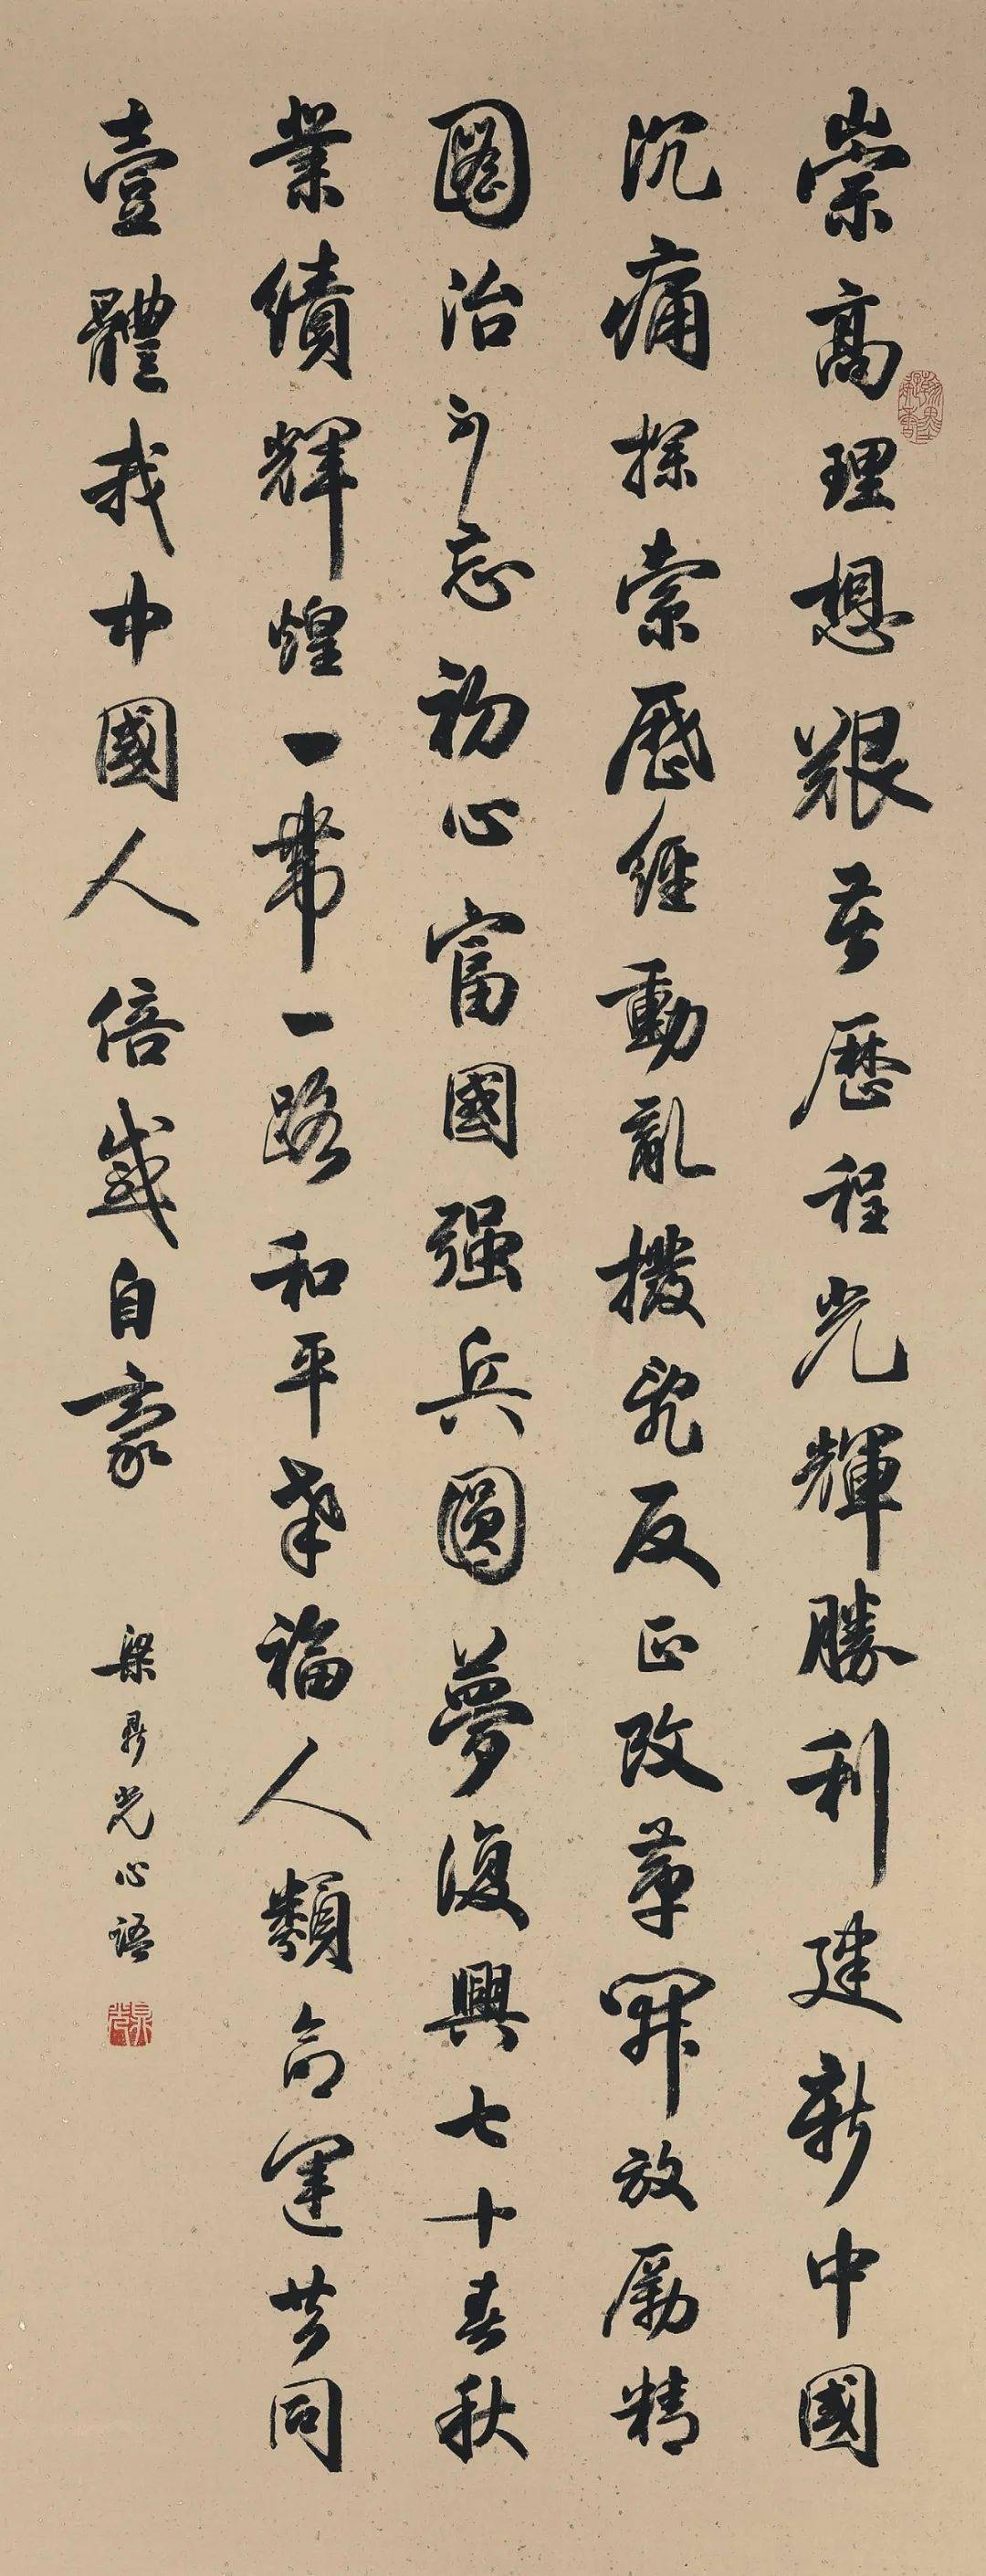 崇高理想艱苦歷程光輝勝利建新中國
沉痛探索歷經動亂撥亂反正改革開放勵精
圖治不忘初心富國强兵圓夢復興七十春秋
業績輝煌一帶一路和平幸福人類命運共同
壹體我中國人倍感自豪
梁鼎光心語